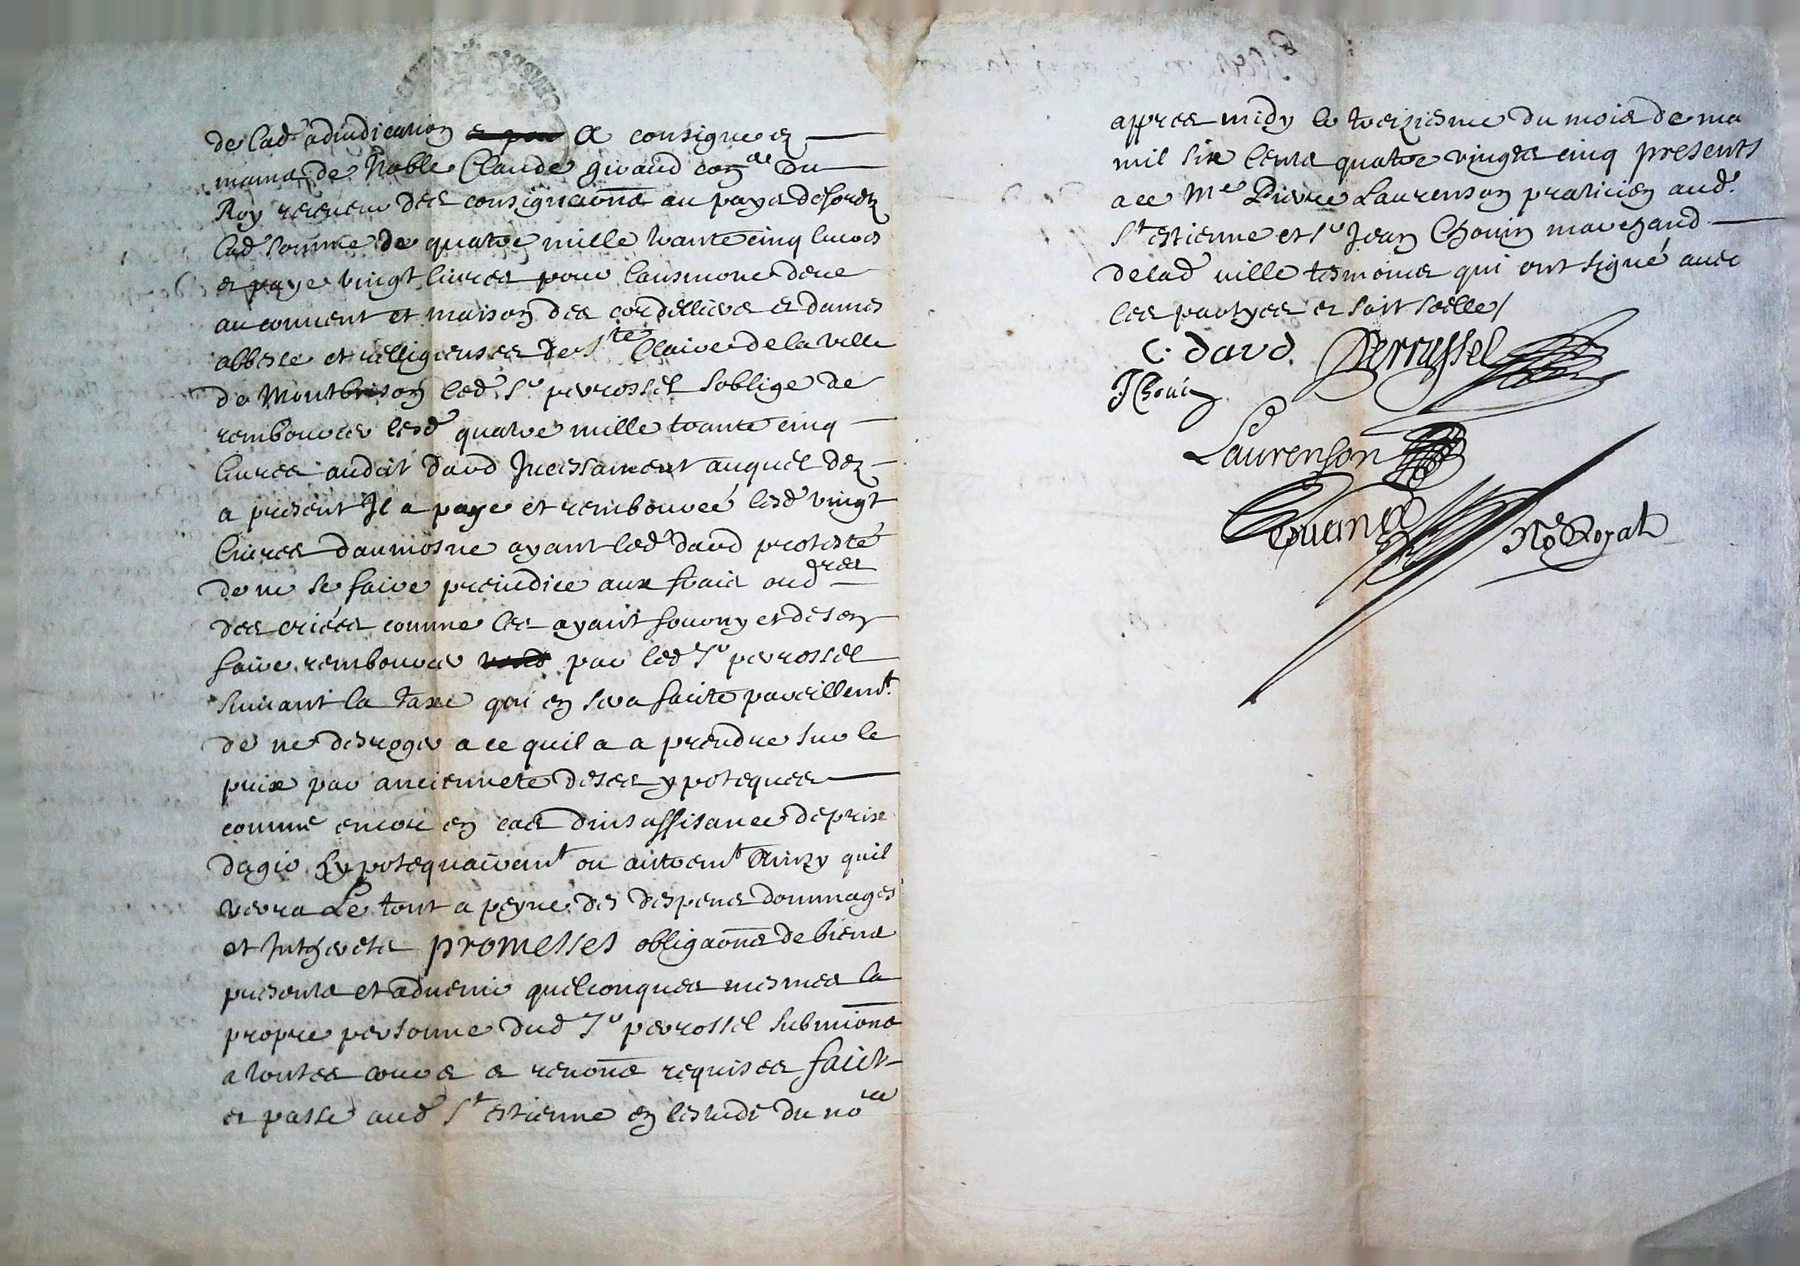 de lad. adiudication et par A consigne ez
mains de Noble Claude girard con.er du
Roy receveur des consignaõns au pays deforez
lad somme de quatre mille trante cinq livres
et paye vingt livres pour lausmone deue
au couvent et maison des cordelliers et dames
abbesse et relligieuses de S.te Claire de la ville
de Montbrison led. S.r perrossel soblige de
rembourcer lesd quatre mille trante cinq
livres audit david Incessament auquel dez
a present Il a paye et rembourcé lesd vingt
livres daumosne ayant led david protesté
de ne se faire preiudice aux frais ord.res
des criées comme les ayant fourny et desen
faire rembourcer par led S.r perrossel
suivant la taxe qui en sera faite pareillem.t
de ne desroger a ce quil a a prendre sur le
prix par ancienneté deses ypoteques
comme encore en cas dinsuffisance deprix
dagir hypotequairem.t ou autrem.t Ainzy quil
verra Le tout a peyne des despens dommages
et Intherets promesses obligaõns de biens
presents et advenir quelconques mesmes la
propre personne dud S.r perrossel submiõns
a toutes cours et renõns requises faict
et passé aud S.t estienne en lestude du no.re
appres midy le treiziesme du mois de ma
mil six cents quatre vingts cinq presents
a ce M.e Pierre Laurenson praticien aud.
S.t estienne et S.r Jean Chovin marchand
delad ville tesmoins qui ont signé avec
les partyes et soit scelle /
C. david. Perrussel
J Chovin
Laurenson
No.e Royal